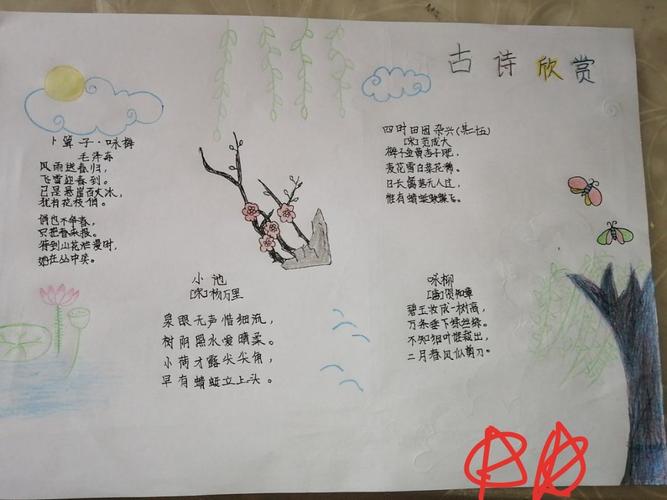 古诗欣赏
卜算子·咏梅
毛泽东
风雨送春归，
飞雪迎春到。
已是悬崖百丈冰，
犹有花枝俏。
俏也不争春，
只把春来报。
待到山花烂漫时，
她在丛中笑。
四时田园杂兴(其二五)
[宋]范成大
梅子金黄杏子肥，
麦花雪白菜花稀。
日长篱落无人过，
惟有蜻蜓蛱蝶飞。
小池
[宋]杨万里
泉眼无声惜细流，
树阴照水爱晴柔。
小荷才露尖尖角，
早有蜻蜓立上头。
咏柳
[唐]贺知章
碧玉妆成一树高，
万条垂下绿丝绦。
不知细叶谁裁出，
二月春风似剪刀。